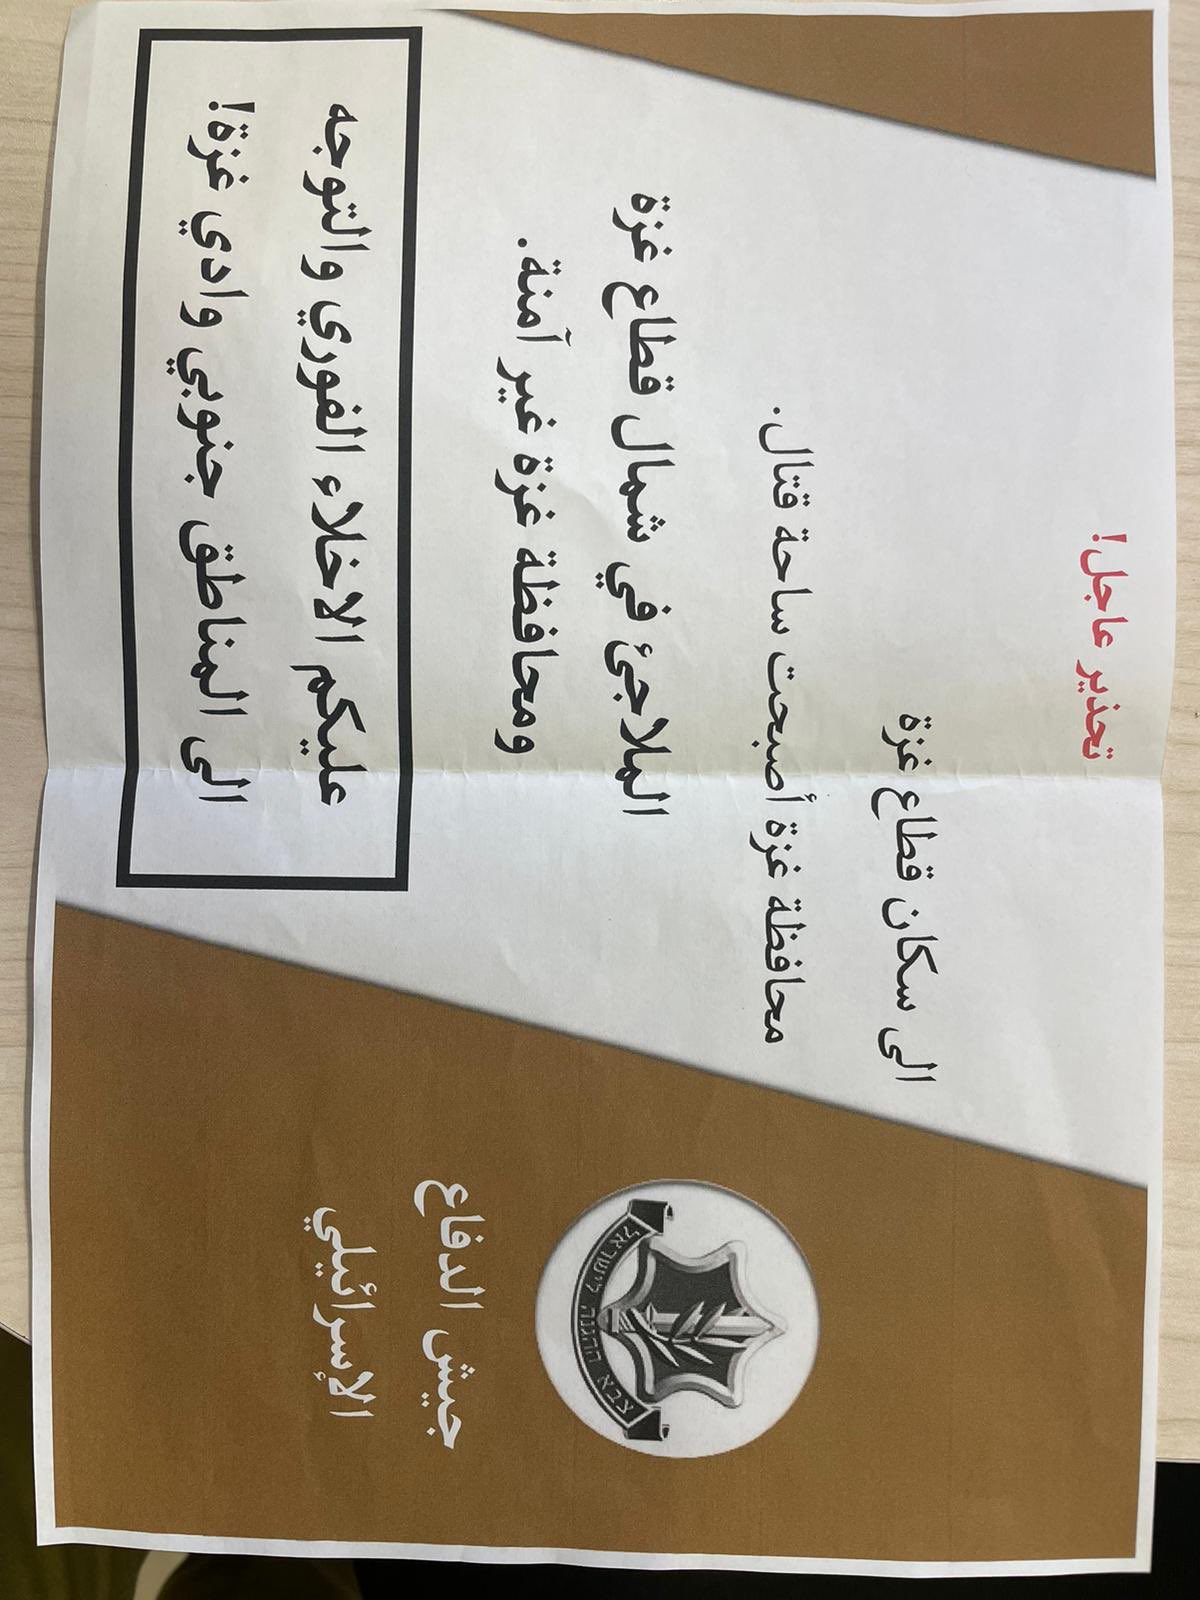 تحذير عاجل!
الى سكان قطاع غزة
محافظة غزة أصبحت ساحة قتال.
الملاجئ في شمال قطاع غزة
ومحافظة غزة غير آمنة.
عليكم الاخلاء الفوري والتوجه
الى المناطق جنوبي وادي غزة!
צבא הגנה לישראל
جيش الدفاع
الإسرائيلي